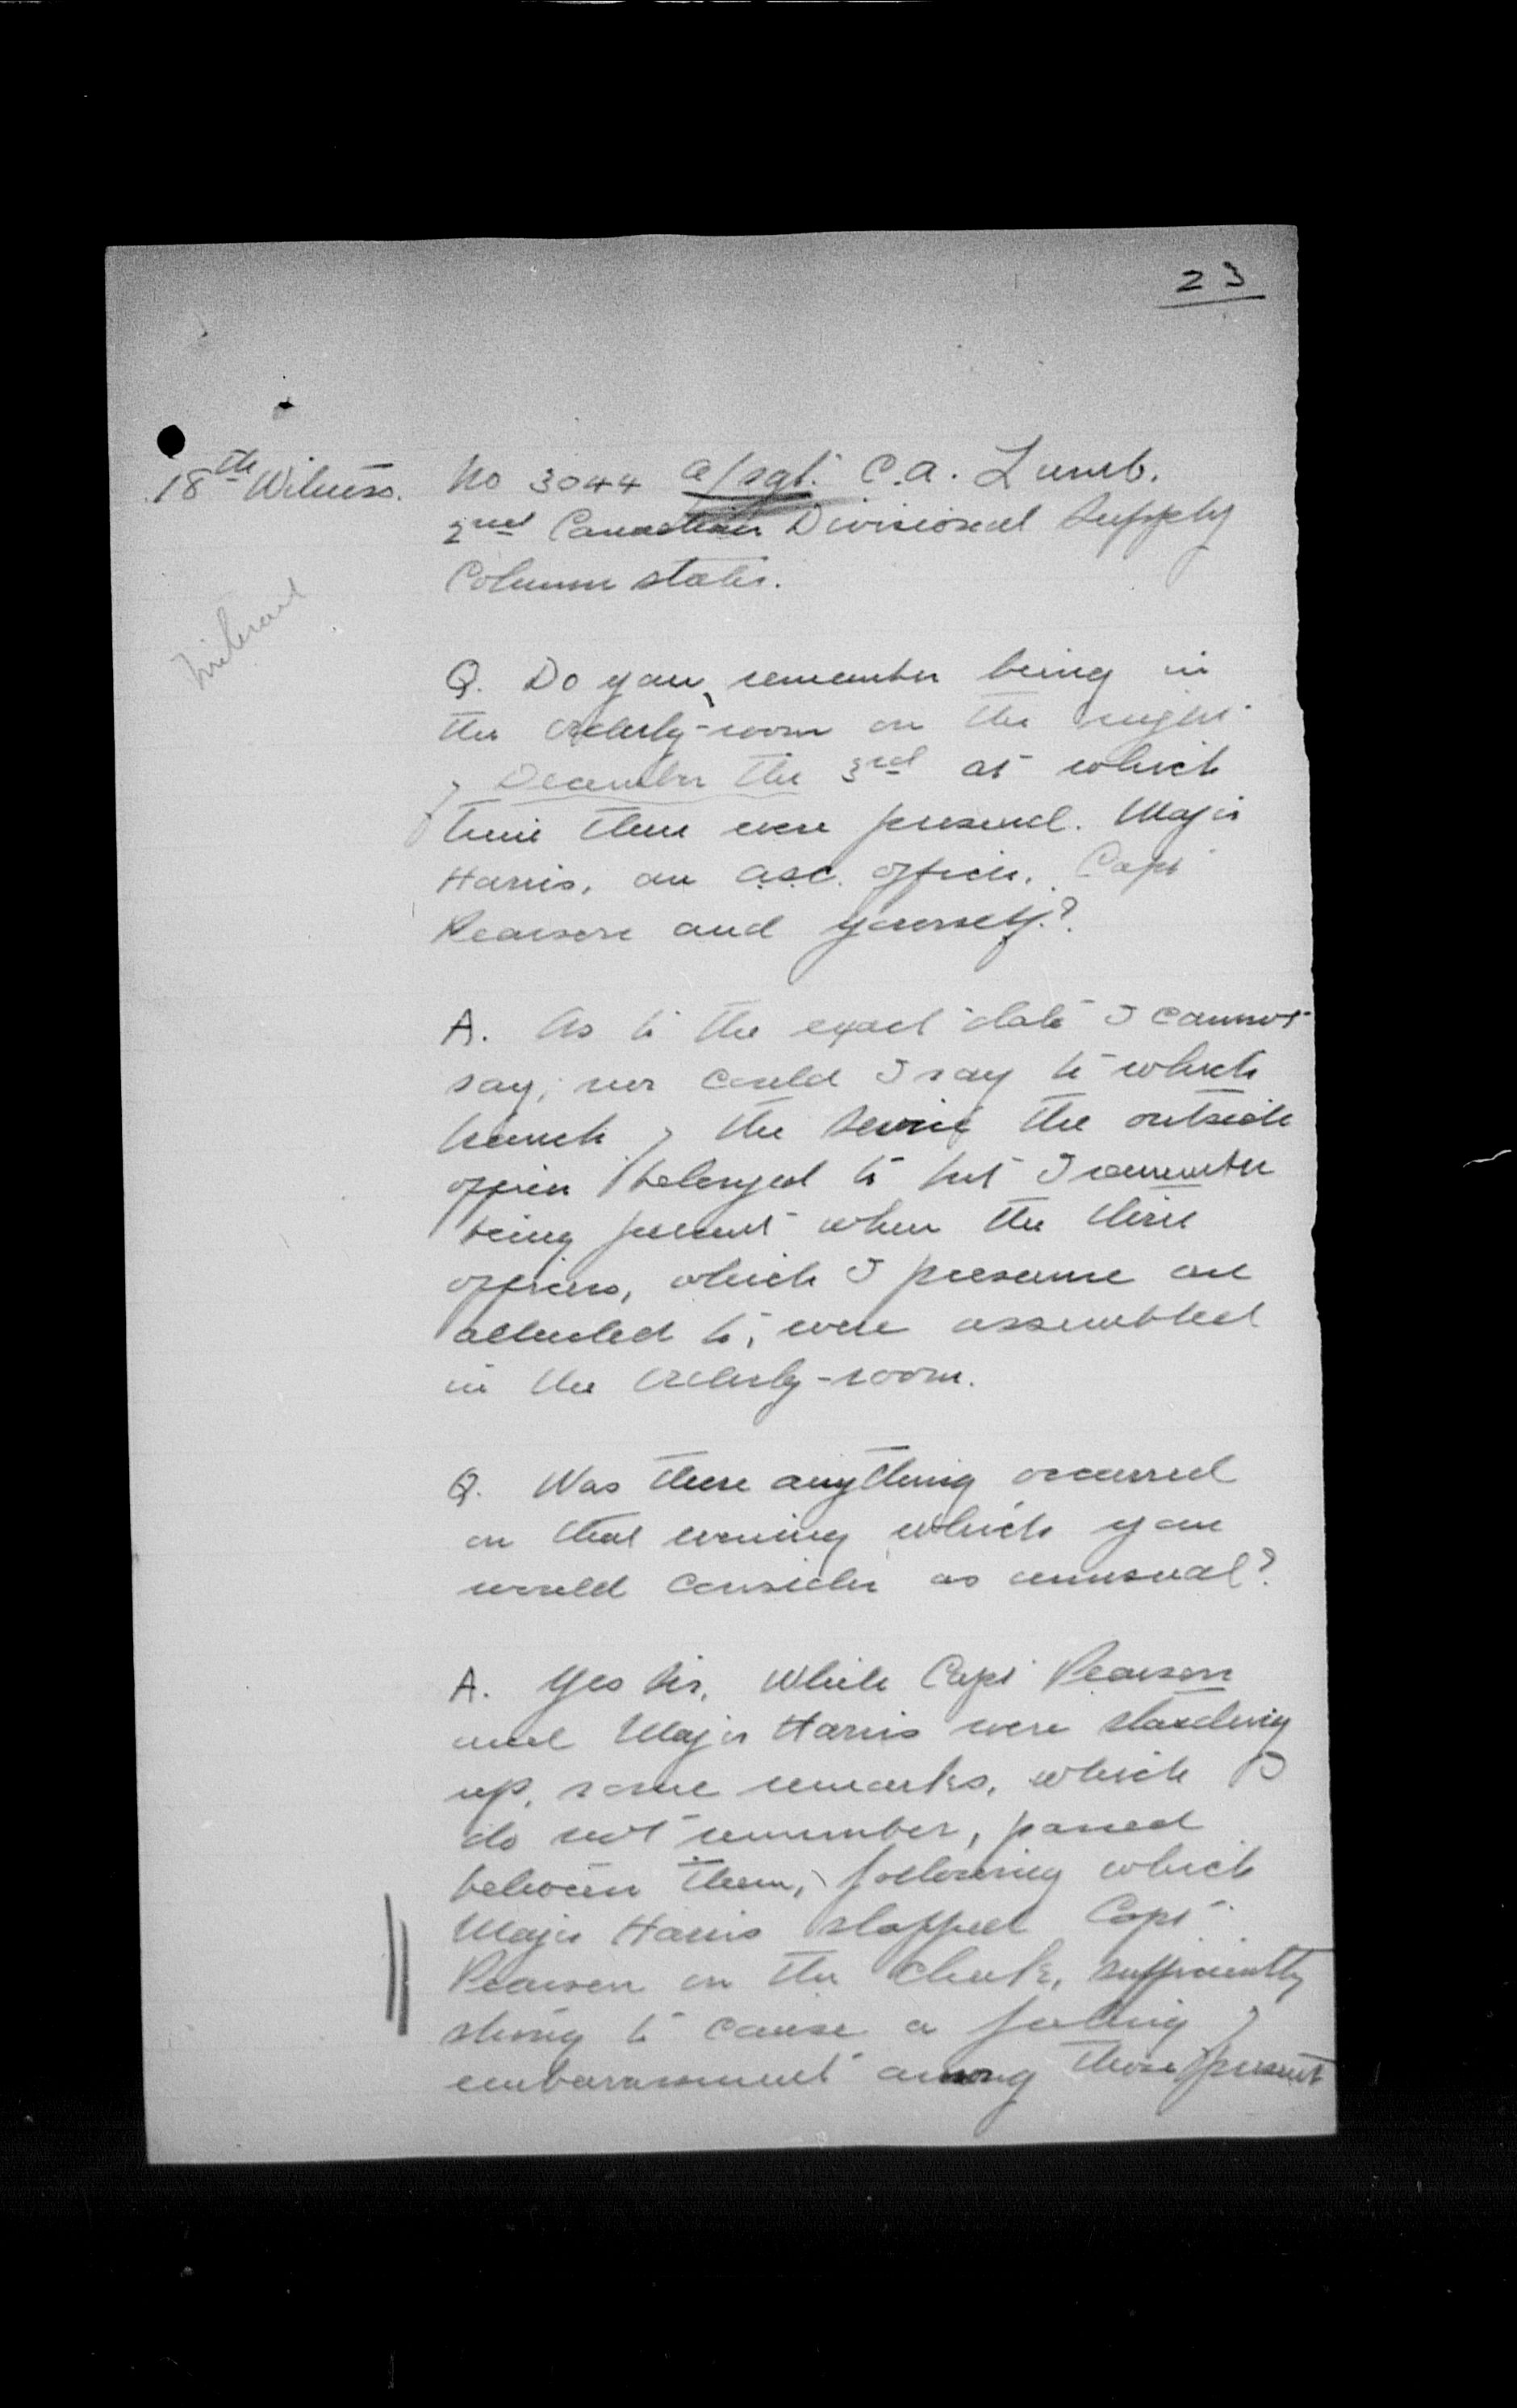 23
18th Witness. No 3044 a/sgt. C.A. Lumb.
2nd Canadian Divisional Supply
Column states.
Q. Do you remember being in
the Orderly-room on the night
of December the 3rd at which
time there were present. Major
Harris, an A.S.C. officer, Capt
Pearson and yourself?
A. As to the exact date I cannot
say, nor could I say to which
branch of the Service the outside
officer belonged to but I remember
being present when the three
officers, which I presume are
alluded to, were assembled
in the Orderly-room.
Q. Was there anything occurred
on that evening which you
would consider as unusual?
A. Yes Sir, While Capt Pearson
and Major Harris were standing
up, some remarks, which I
do not remember, passed
between them, following which
Major Harris slapped Capt
Pearson on the cheek, sufficiently
strong to cause a feeling of
embarrassment among those present